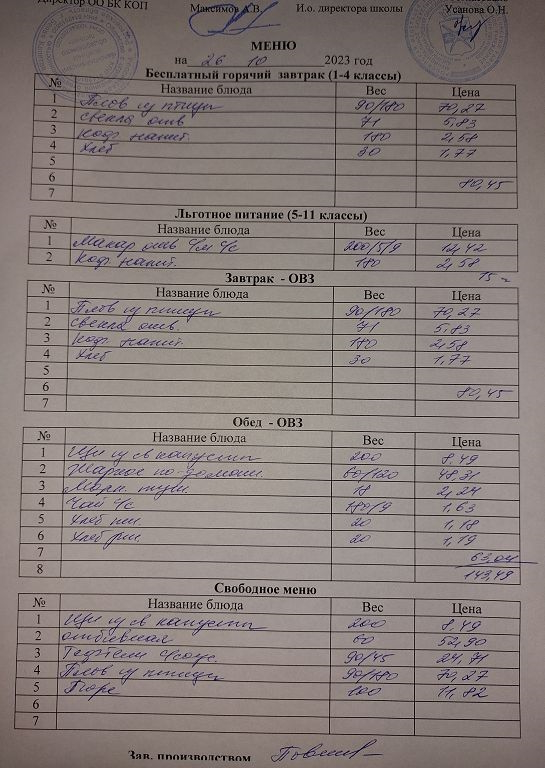 Директор ОО БК КОП Максимов А.В. И.о. директора школы
Усанова О.Н.
МЕНЮ
на 26 10 2023 год
Бесплатный горячий завтрак (1-4 классы)
№ Название блюда Вес Цена
1 Плов из птицы 90/180 70,27
2 Свекла отв. 71 5,83
3 Коф. напит. 180 2,58
4 Хлеб 30 1,77
5
6 80,45
7
Льготное питание (5-11 классы)
№ Название блюда Вес Цена
1 Макар отв с/м с/с 200/5/9 12,42
2 Коф. напит. 180 2,58
15
Завтрак - ОВЗ
№ Название блюда Вес Цена
1 Плов из птицы 90/180 70,27
2 Свекла отв. 71 5,83
3 Коф. напит. 180 2,58
4 Хлеб 30 1,77
5
6 80,45
7
Обед - ОВЗ
№ Название блюда Вес Цена
1 Щи из св капусты 200 8,49
2 Жаркое по-домашн. 60/120 48,31
3 18 2,24
4 Чай с/с 180/9 1,63
5 Хлеб пш. 20 1,18
6 Хлеб рж. 20 1,19
7 63,04
8 143,49
Свободное меню
№ Название блюда Вес Цена
1 Щи из св капусты 200 8,49
2 отбивная 60 52,90
3 Тефтели с/соус. 90/45 24,71
4 Плов из птицы 90/180 70,27
5 Пюре 100 11,82
6
7
Зав. производством